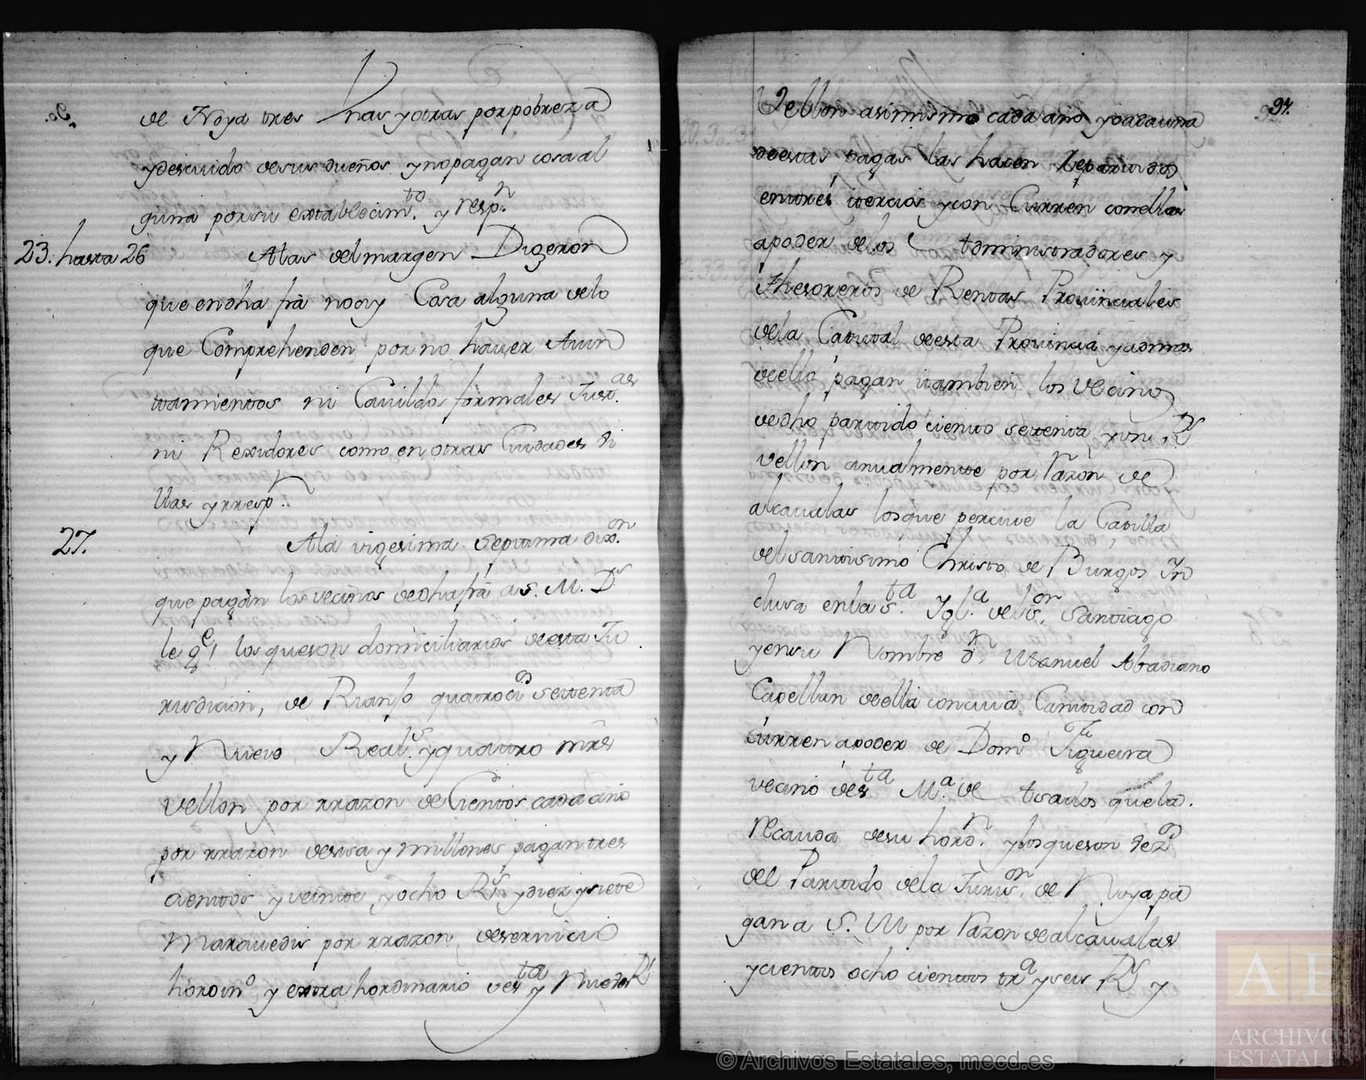 de Noya tres Unas y otras por pobreza
y descuido de sus dueños y no pagan cosa al
guna por su establecim.to y resp.n
23. hasta 26 A las del margen Dixeron
que en dha frâ no ay Cosa alguna de lo
que Comprehenden por no haver Aiun
tamientos ni Cavildo formales Just.as
ni Rexidores como en otras Ciudades Vi
llas y rresp.n
27. A la vigesima septima dix.on
que pagan los vecinos de dha frâ a S. M. D.s
le g.e los que son domiciliarios de esta Ju
risdicion, de Rianjo quatroci.os settenta
y Nueve Real.s y quatro mrs
Vellon por rrazon de Cientos cada año
por rrazon de sisa y millones pagan tres
cientos y veinte y ocho R.s y diez y siete
Maravedis por rrazon de servicio
hordin.o y extra hordinario ses.ta y Nueve R.s
97.
Vellon asimismo cada año y cada una
de estas pagas las hacen repartidas
en tres tercios y con Curren con ellas
a poder de los Administradores y
thesoreros de Rentas Provinciales
de la Capital de esta Provincia y ademas
de ello pagan tambien los Vecinos
de dho partido ciento setenta R.s
vellon anualmente por razon de
alcavalas los que percive la Capilla
del santisimo Christo de Burgos In
clusa en la s.ta Ygl.a de el s.or Santiago
y en su Nombre d.n Manuel Abadiano
Capellan de ella con cuia Cantidad con
curren a poder de Dom.o Figueira
vecino de s.ta M.a de que la
recauda de su hord.n y los que son
del Partido de la Juris.on de Noya pa
gan a S. M por razon de alcavalas
y cientos ocho cientos tr.a y seis R.s y
© Archivos Estatales, mecd.es
AE
ARCHIVOS
ESTATALES